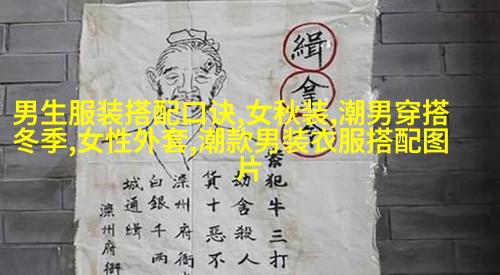 男生服装搭配口诀,女秋装,潮男穿搭
冬季,女性外套,潮款男装衣服搭配图
片
緝
拿
犯牛三打
劫舍殺人
貨十惡不
滦州府衙
白銀千两
城通緝
滦州府衙